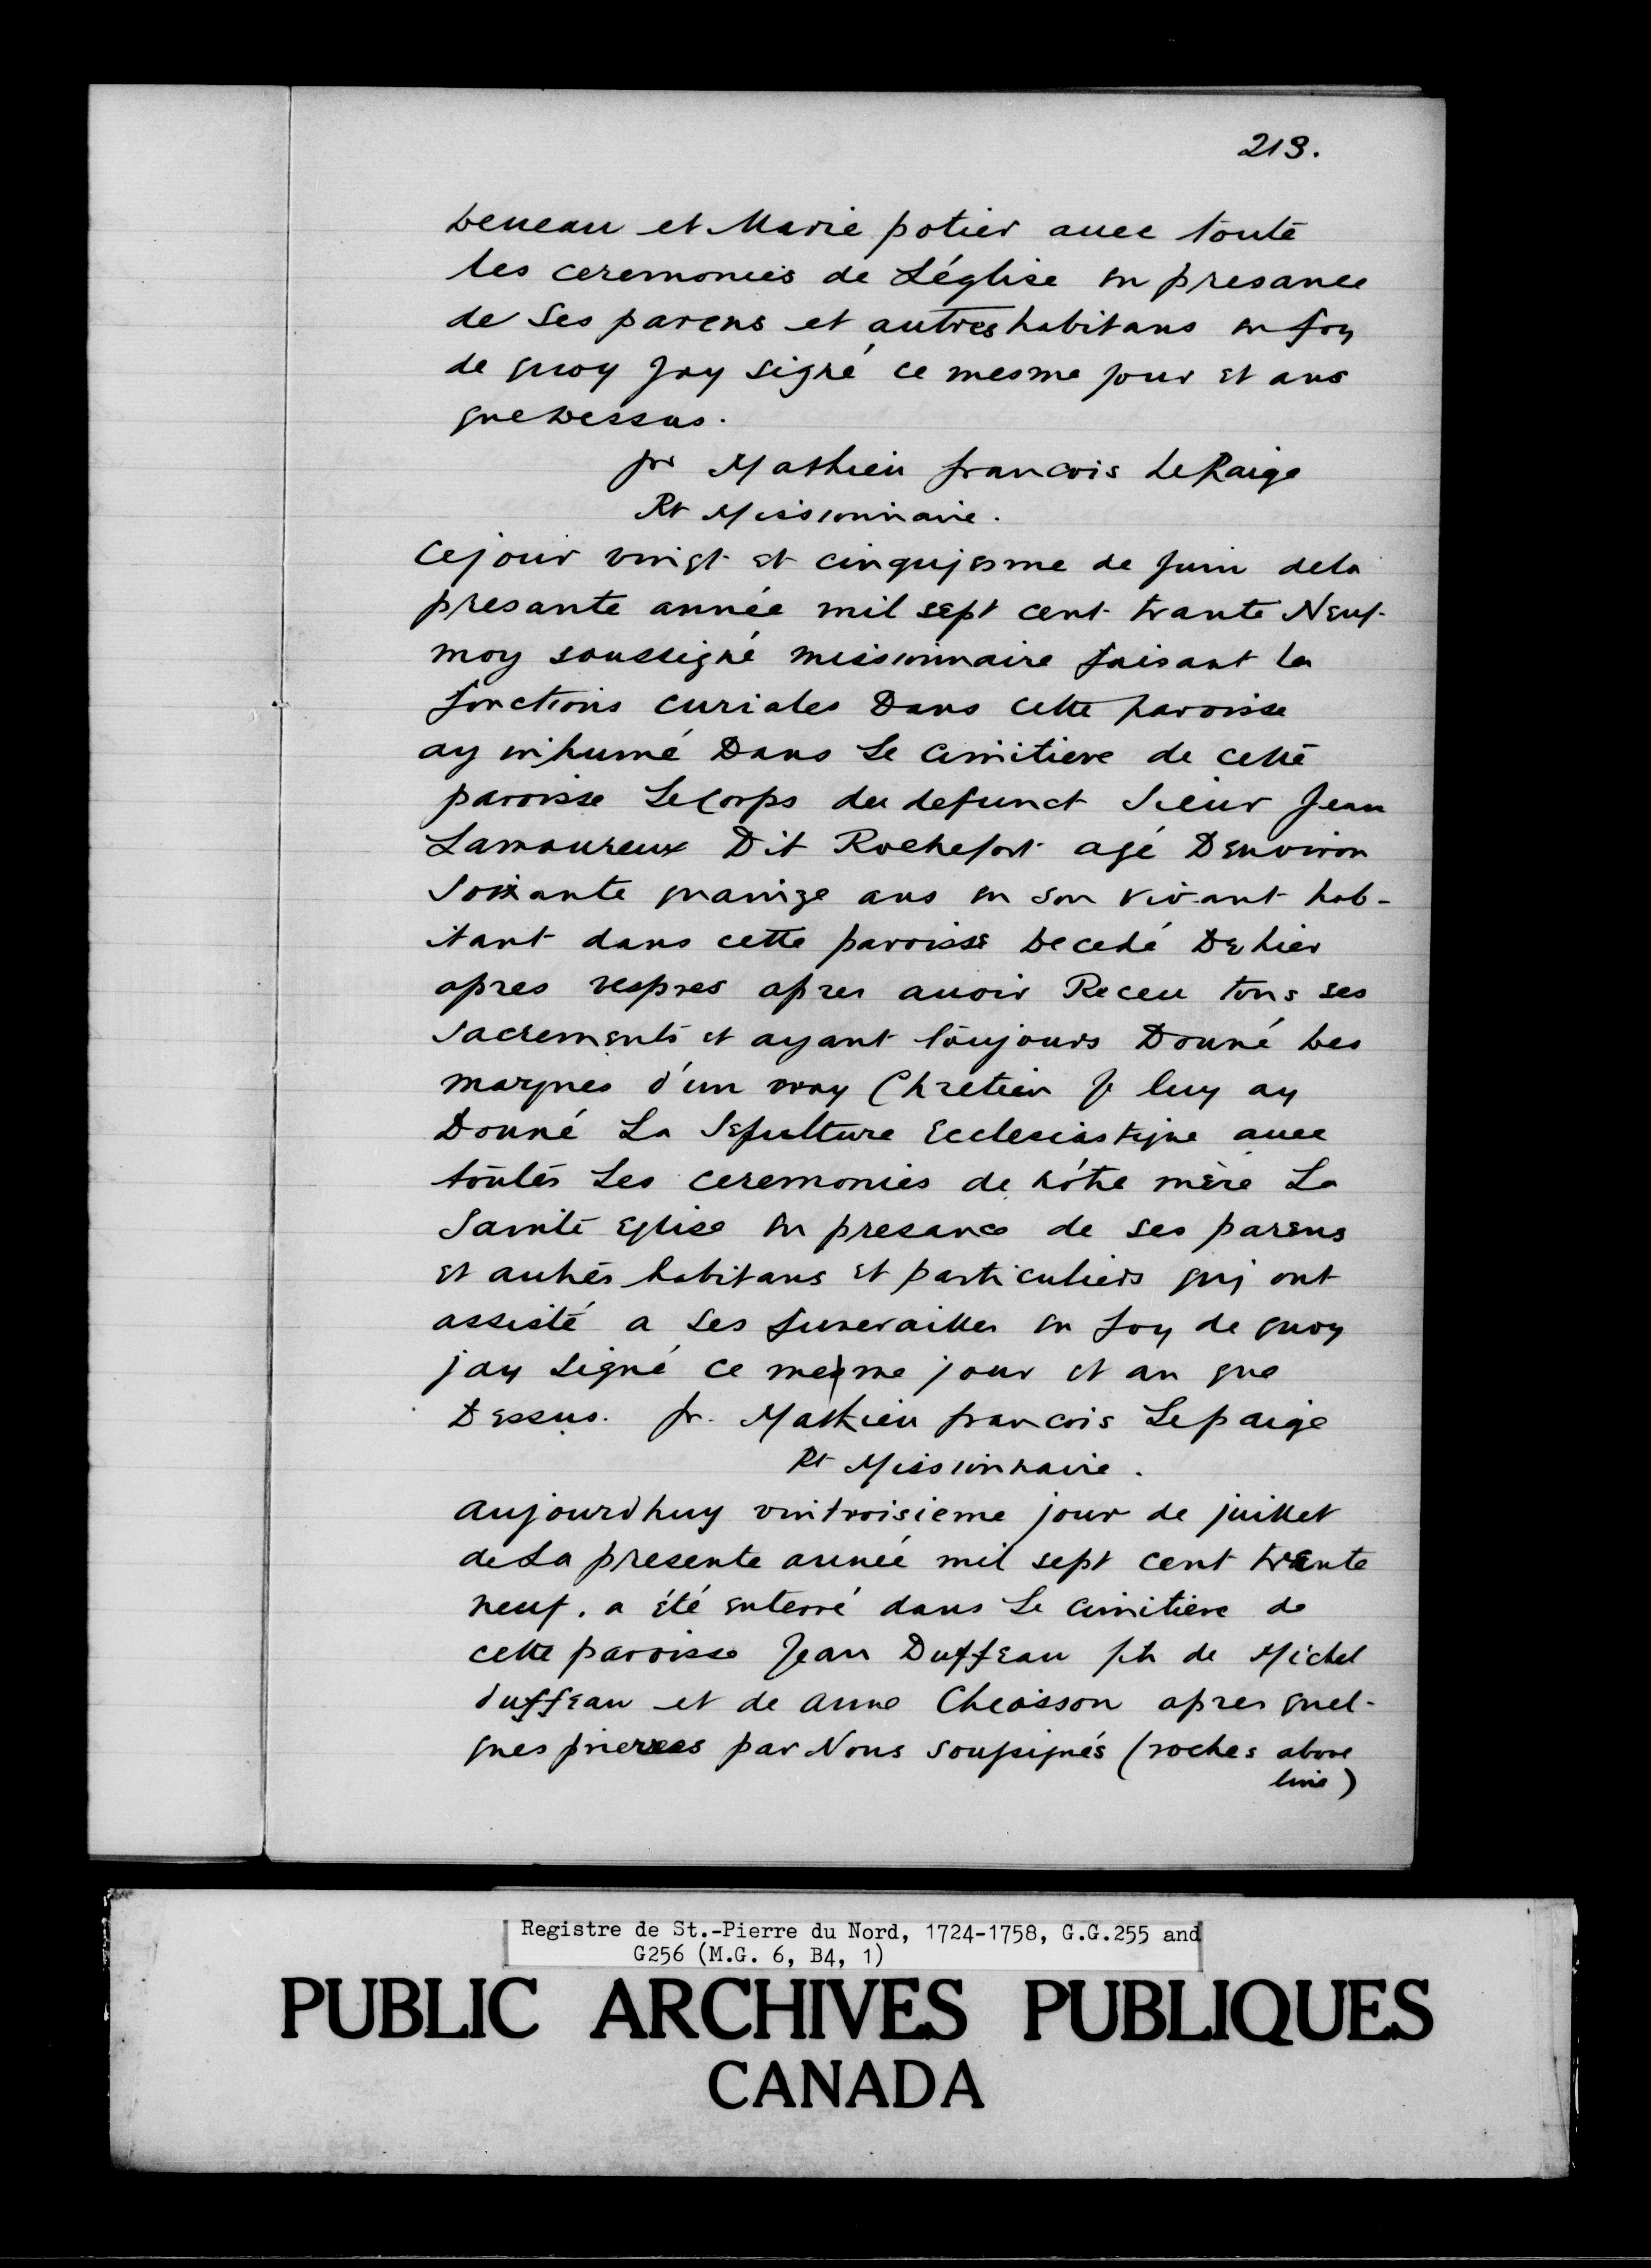 213.
Deveau et Marie potier avec toute
les ceremonies de Léglise en presance
de Ses parens et autres habitans en foy
de quoy Jay signé ce mesme jour et ans
que Dessus.
fr Mathieu francois LePaige
Rt Missionnaire.
Ce jour vingt et cinqujesme de Juin dela
presante année mil sept cent trante Neuf
moy soussigné missionnaire faisant les
fonctions curiales Dans cette paroisse
ay inhumé Dans Le Cimitiere de cette
paroisse Le Corps du defunct Sieur Jean
Lamoureux Dit Rochefort agé Denviron
Soixante quainze ans en son vivant hab-
itant dans cette paroisse Decedé De hier
apres vespres apres avoir Receu tous ses
Sacrements et ayant toujours Donné Des
marques d'un vray Chretien Je luy ay
Donné La Sepulture Ecclesiastique avec
toutes Les ceremonies de nôtre mère La
Sainte Eglise en presance de ses parens
et autres habitans et particuliers quj ont
assisté a Ses funerailles en foy de quoy
jay Signé ce mesme jour et an que
Dessus. fr. Mathieu francois Lepaige
Rt Missionnaire.
aujourdhuy vintroisieme jour de juillet
de La presente année mil sept cent trente
neuf. a été enterré dans Le Cimitière de
cette paroisse Jean Duffeau fils de Michel
duffeau et de anne Cheasson apres quel-
ques prieres par Nous soussignés (roches above
line)
Registre de St.-Pierre du Nord, 1724-1758, G.G.255 and
G256 (M.G. 6, B4, 1)
PUBLIC ARCHIVES PUBLIQUES
CANADA